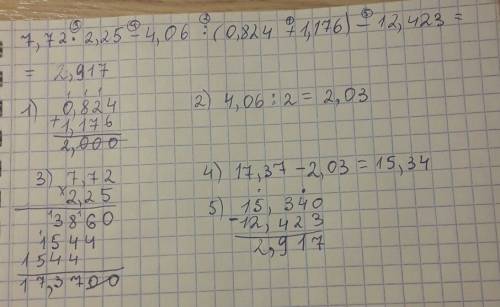 7,72 · 2,25 − 4,06 : (0,824 + 1,176) − 12,423 =
3 4 2 1 5
= 2,917
1) 0,824
+ 1,176
2,000
2) 4,06 : 2 = 2,03
3) 7,72
× 2,25
3860
1544
1544
17,3700
4) 17,37 − 2,03 = 15,34
5) 15,340
− 12,423
2,917